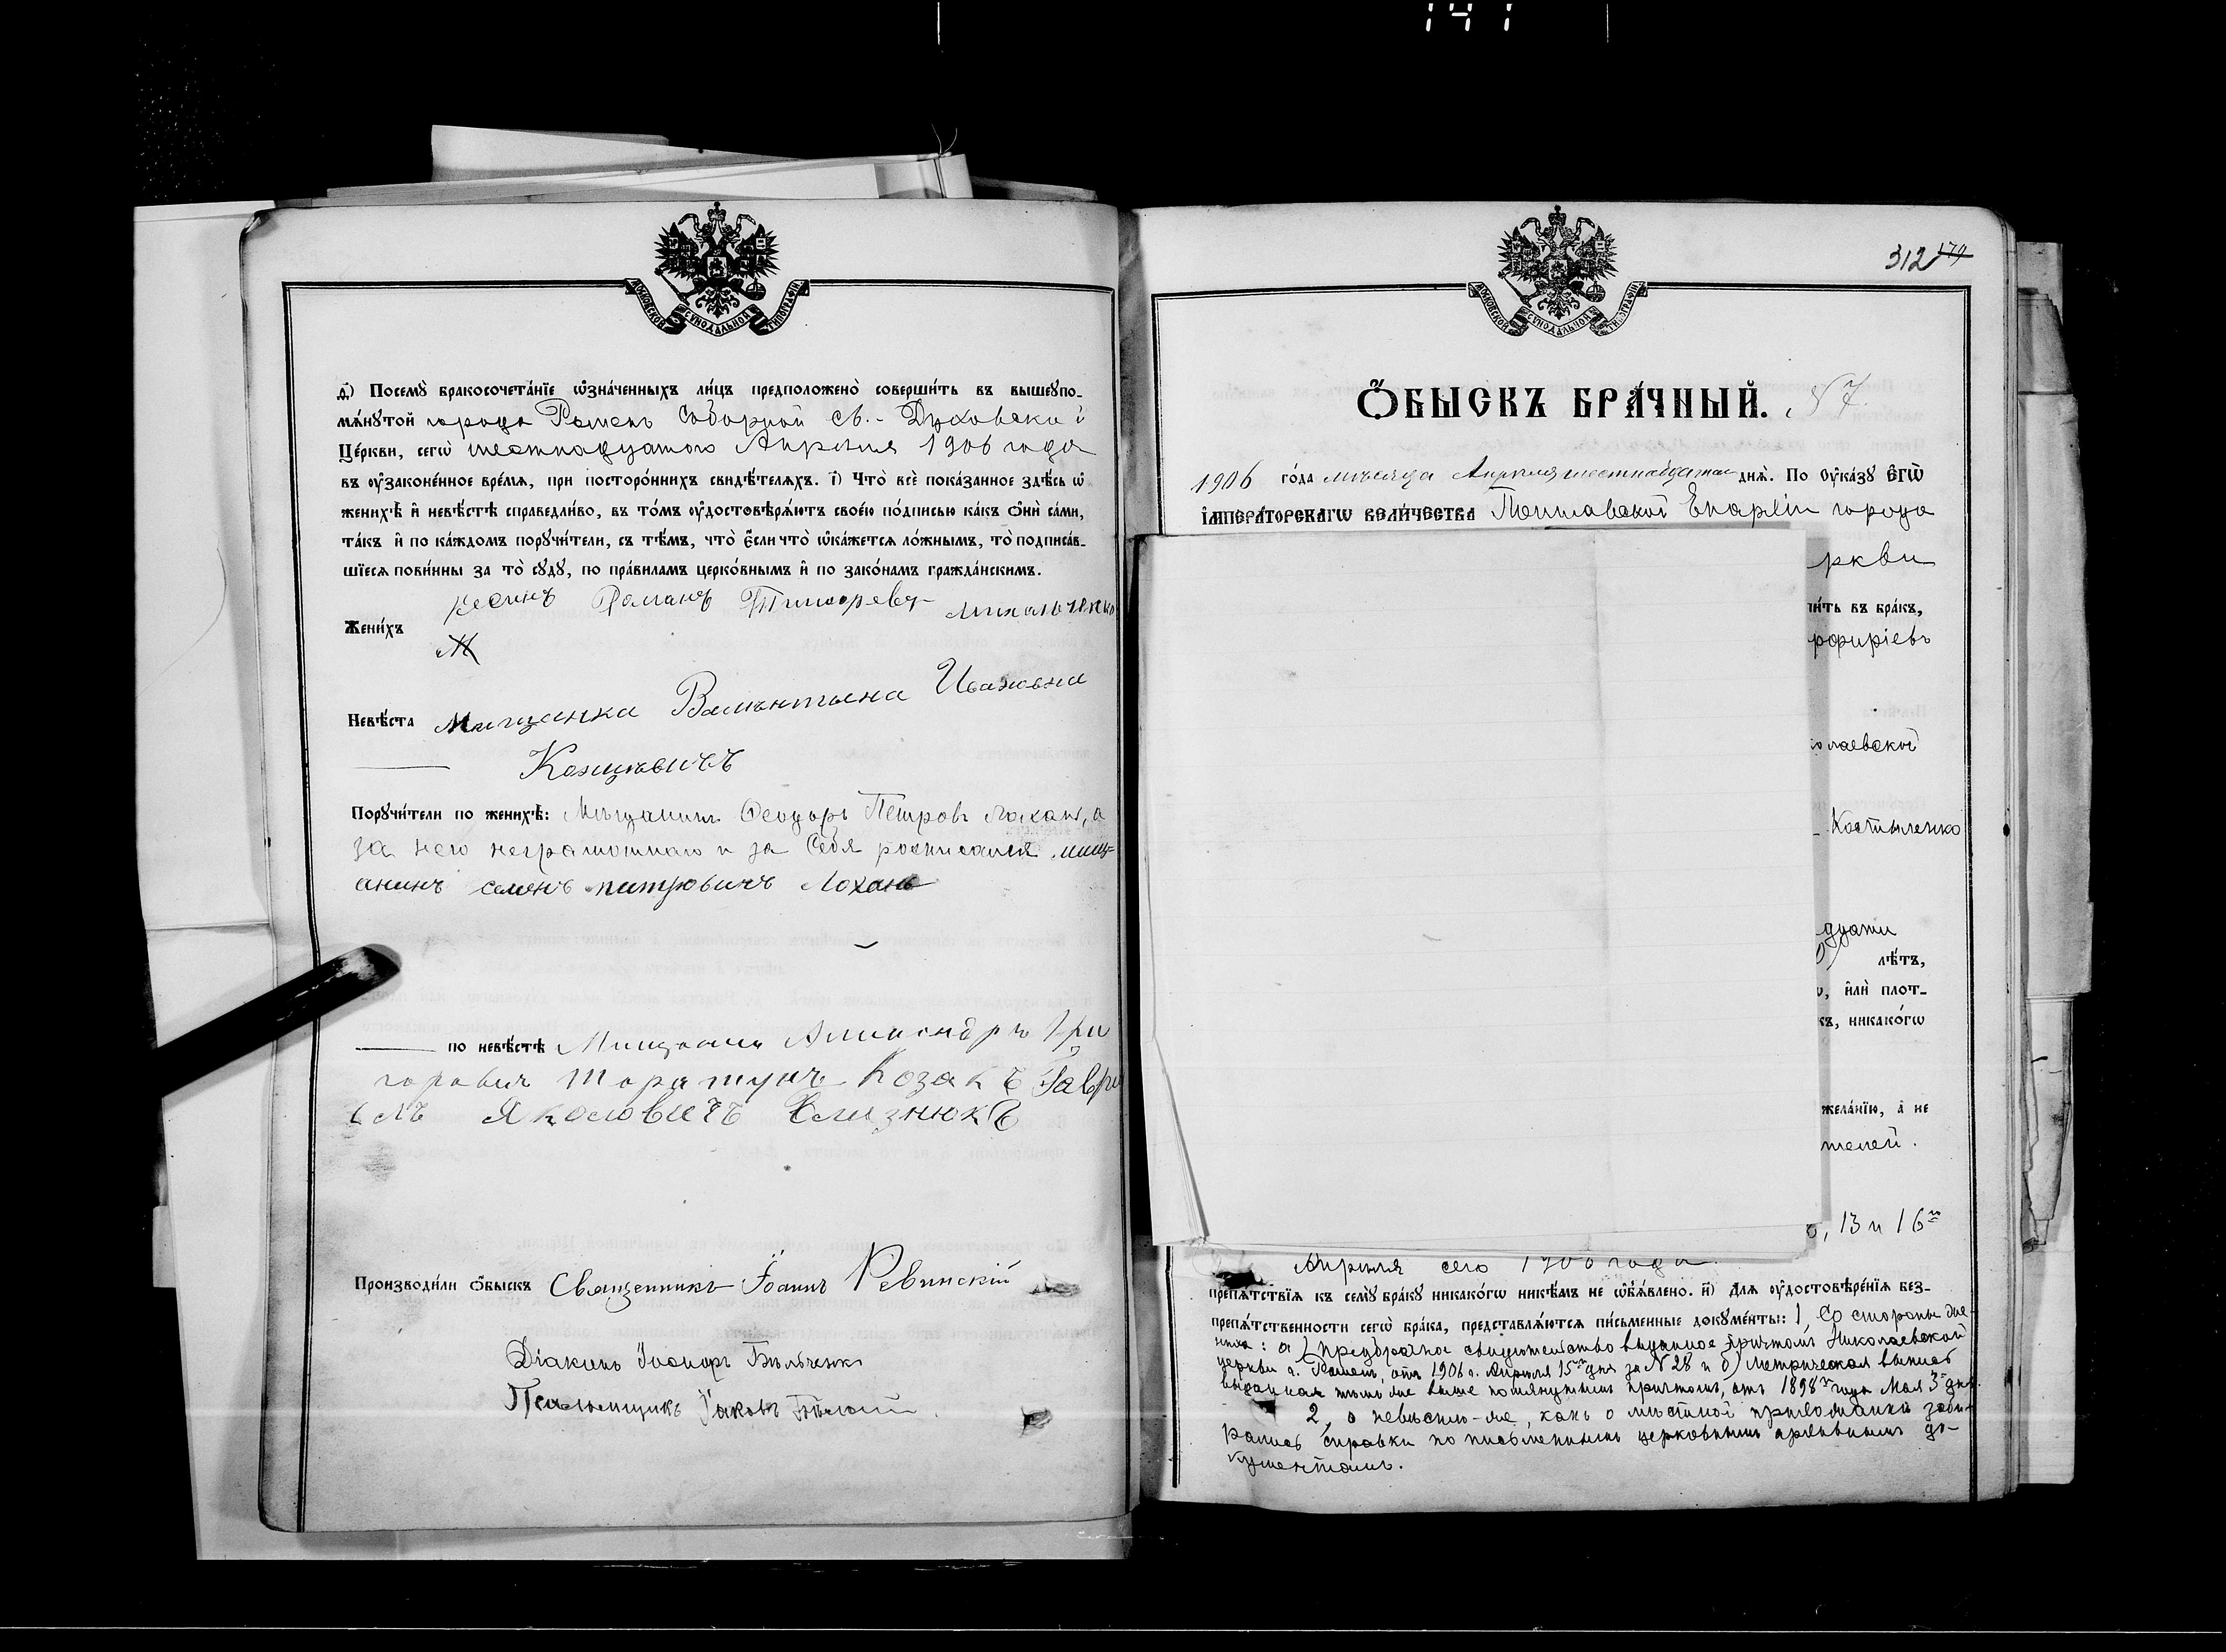 141
МОСКОВСКОЙ СѴНОДАЛЬНОЙ ТИПОГРАФІИ
д҃) Посемꙋ̀ бракосочета́нїе ѡ҆зна́ченныхъ ли́цъ предположено̀ соверши́ть въ вышеꙋпо-
мѧ́нꙋтой города Роменъ Соборной Св.-Духовской
Це́ркви, сегѡ̀ шестнадцатого Апрѣля 1906 года
въ ᲂу҆законе́нное вре́мѧ, при посторо́ннихъ свидѣ́телѧхъ. і҃) Что̀ всѐ пока́занное здѣ́сь ѡ҆
женихѣ̀ и҆ невѣ́стѣ справедли́во, въ то́мъ ᲂу҆достовѣрѧ́ютъ свое́ю по́дписью ка́къ ѻ҆нѝ са́ми,
та́къ и҆ по ка́ждомъ порꙋчи́тели, съ тѣ́мъ, что̀ є҆́сли что̀ ѡ҆ка́жетсѧ ло́жнымъ, то̀ подписа́в-
шїесѧ пови́нны за то̀ сꙋдꙋ̀, по пра́виламъ церко́внымъ и҆ по зако́намъ гражда́нскимъ.
Жени́хъ Романъ Михальченко
Невѣ́ста Мещанка Валентына Ивановна
Порꙋчи́тели по женихѣ̀: Мѣщанинъ Ѳеодоръ Петровъ Лахань, а
за него неграмотнаго и за Себя росписался мищ-
анинъ семенъ питровичъ Лохань
по невѣ́стѣ Мищанин Аликсндръ Гри
горович Таратунъ Козакъ Гаври
илъ Яковловичъ Близнюкъ
Производи́ли ѻ҆́быскъ Священникъ Іоаннъ Ревинскій
Діаконъ Бѣльченко
Псаломщикъ Іаковъ
312 179
МОСКОВСКОЙ СѴНОДАЛЬНОЙ ТИПОГРАФІИ
Ѻ҆́БЫСКЪ БРА́ЧНЫЙ. № 7.
1906 го́да мѣсяца Апрѣля шестнадцатаго днѧ̀. По ᲂу҆ка́зꙋ Є҆ГѠ̀
І҆МПЕРА́ТОРСКАГѠ ВЕЛИ́ЧЕСТВА Полтавской Епархіи города
ркви
и́ть въ бра́къ,
рфиріевъ
олаевской
Костыленко
дцати
лѣ́тъ,
и҆лѝ плот-
къ, никако́гѡ
жела́нїю, а҆ не
телей.
, 13 и 16го
Апрѣля сего 1906 года
препѧ́тствїѧ къ семꙋ̀ бра́кꙋ никако́гѡ никѣ́мъ не ѡ҆б̾ѧ́влено. и҃) Длѧ ᲂу҆достовѣре́нїѧ без-
препѧ́тственности сегѡ̀ бра́ка, представлѧ́ютсѧ пи́сьменные докꙋме́нты: 1, Со стороны же-
ниха: а) предбрачное свидѣтельство выданное причтомъ Николаевской
церкви г. Роменъ, отъ 1906 г. Апрѣля 15го дня за № 28 и б) Метрическая выпись
выданная тѣмъ же выше помянутымъ причтомъ, отъ 1898го года Мая 3го дня.
2, о невѣстѣ-же, какъ о мѣстной прихожанкѣ заби-
рались справки по письменнымъ церковнымъ архивнымъ до-
кументамъ.